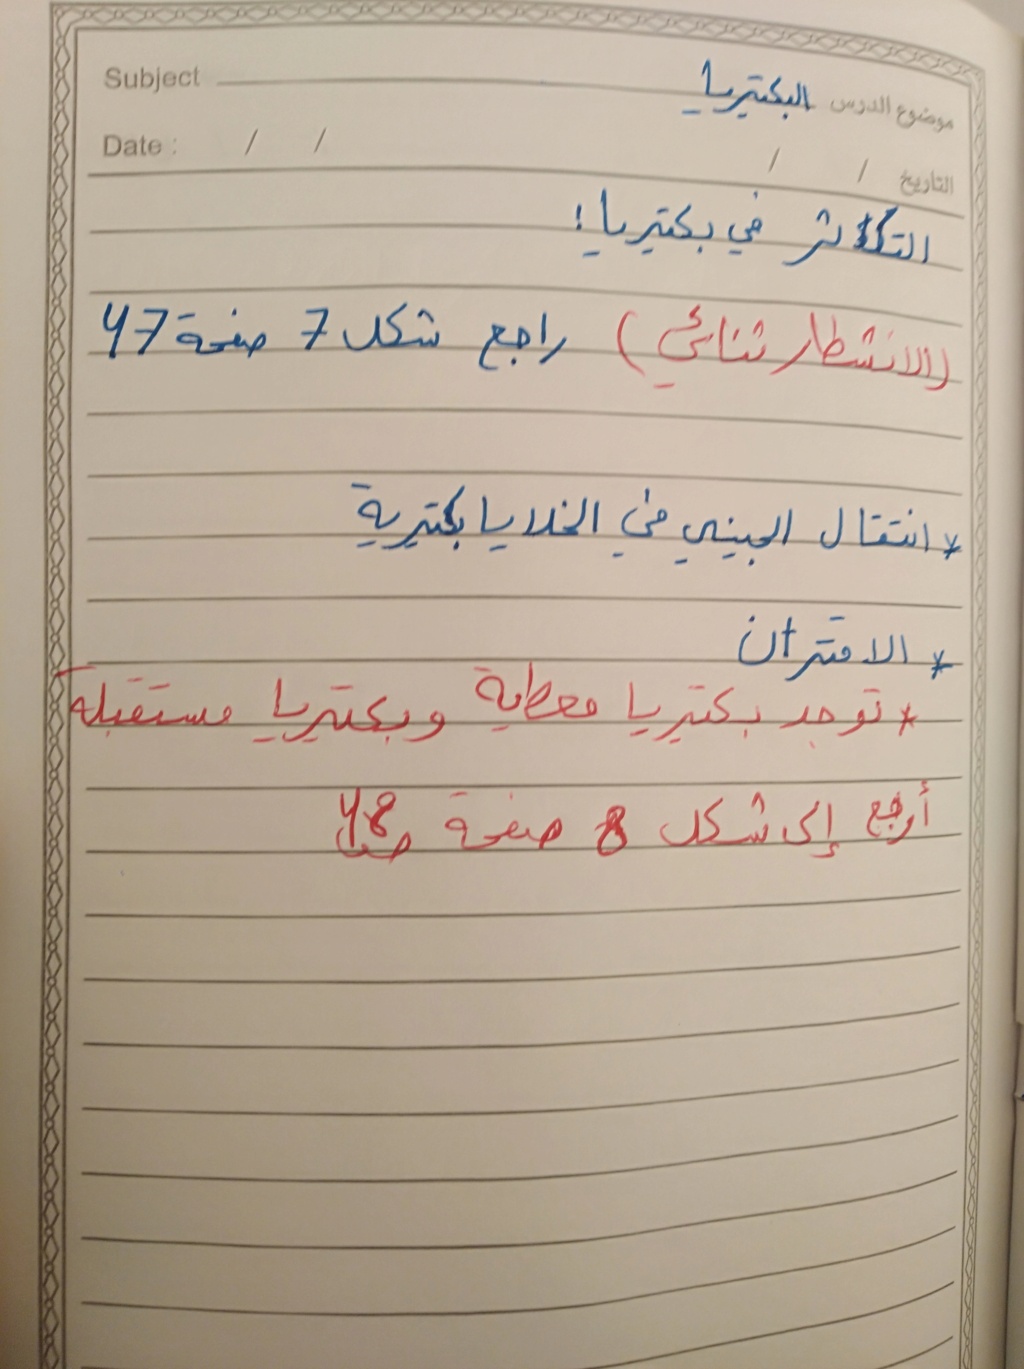 Subject موضوع الدرس البكتيريا
Date : / / التاريخ / /
التكاثر في بكتيريا:
(الانشطار ثنائي) راجع شكل 7 صفحة 47
* انتقال الجيني في الخلايا بكتيرية
* الاقتران
* توجد بكتيريا معطية وبكتيريا مستقبلة
أرجع إلى شكل 8 صفحة 48